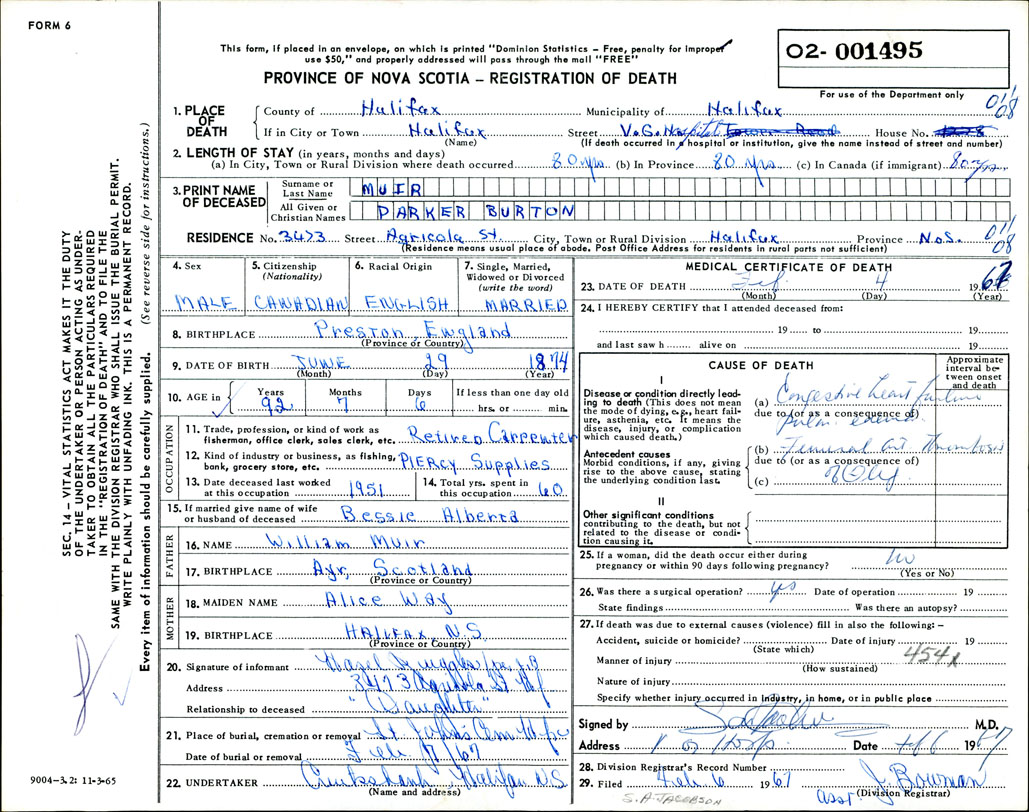 FORM 6
This form, if placed in an envelope, on which is printed "Dominion Statistics – Free, penalty for improper
use $50," and properly addressed will pass through the mail "FREE"
PROVINCE OF NOVA SCOTIA – REGISTRATION OF DEATH
02- 001495
For use of the Department only
1. PLACE OF DEATH
County of Halifax Municipality of Halifax 011/08
If in City or Town Halifax Street V.G. Hospital House No.
(Name) (If death occurred in hospital or institution, give the name instead of street and number)
2. LENGTH OF STAY (in years, months and days)
(a) In City, Town or Rural Division where death occurred 80 yrs (b) In Province 80 yrs (c) In Canada (if immigrant) 80 yrs
3. PRINT NAME OF DECEASED
Surname or Last Name MUIR
All Given or Christian Names PARKER BURTON
RESIDENCE No. 3473 Street Agricola St. City, Town or Rural Division Halifax Province N.S. 011/08
(Residence means usual place of abode. Post Office Address for residents in rural parts not sufficient)
4. Sex
MALE
5. Citizenship (Nationality)
CANADIAN
6. Racial Origin
ENGLISH
7. Single, Married, Widowed or Divorced (write the word)
MARRIED
8. BIRTHPLACE Preston, England
(Province or Country)
9. DATE OF BIRTH JUNE 29 1874
(Month) (Day) (Year)
10. AGE in Years 92 Months 7 Days 6 If less than one day old hrs. or min.
OCCUPATION
11. Trade, profession, or kind of work as fisherman, office clerk, sales clerk, etc. Retired Carpenter
12. Kind of industry or business, as fishing, bank, grocery store, etc. PIERCY Supplies
13. Date deceased last worked at this occupation 1951
14. Total yrs. spent in this occupation 60
15. If married give name of wife or husband of deceased Bessie Alberta
FATHER
16. NAME William Muir
17. BIRTHPLACE Ayr, Scotland
(Province or Country)
MOTHER
18. MAIDEN NAME Alice Way
19. BIRTHPLACE HALIFAX, N.S.
(Province or Country)
20. Signature of informant
Address 3473 Agricola St Hfx
Relationship to deceased "(Daughter"
21. Place of burial, cremation or removal St. John's Cem
Date of burial or removal Feb 7/67
22. UNDERTAKER Cruikshank, Halifax N.S.
(Name and address)
MEDICAL CERTIFICATE OF DEATH
23. DATE OF DEATH Feb. 4 1967
(Month) (Day) (Year)
24. I HEREBY CERTIFY that I attended deceased from:
19 to 19
and last saw h alive on 19
CAUSE OF DEATH
Approximate interval between onset and death
I
Disease or condition directly leading to death (This does not mean the mode of dying, e.g., heart failure, asthenia, etc. It means the disease, injury, or complication which caused death.)
(a) Congestive heart failure
due to (or as a consequence of)
pulm. edema
Antecedent causes
Morbid conditions, if any, giving rise to the above cause, stating the underlying condition last.
(b) Femoral art Thrombosis
due to (or as a consequence of)
(c)
II
Other significant conditions contributing to the death, but not related to the disease or condition causing it.
25. If a woman, did the death occur either during pregnancy or within 90 days following pregnancy? no
(Yes or No)
26. Was there a surgical operation? yes Date of operation 19
State findings Was there an autopsy?
27. If death was due to external causes (violence) fill in also the following: –
Accident, suicide or homicide? Date of injury 19
(State which)
Manner of injury 454x
(How sustained)
Nature of injury
Specify whether injury occurred in Industry, in home, or in public place
Signed by M.D.
Address Date Feb 6 1967
28. Division Registrar's Record Number
29. Filed Feb 6 1967 J. Bowman
asst. (Division Registrar)
S. A. JACOBSON
SEC. 14 – VITAL STATISTICS ACT MAKES IT THE DUTY
OF THE UNDERTAKER OR PERSON ACTING AS UNDER-
TAKER TO OBTAIN ALL THE PARTICULARS REQUIRED
IN THE "REGISTRATION OF DEATH" AND TO FILE THE
SAME WITH THE DIVISION REGISTRAR WHO SHALL ISSUE THE BURIAL PERMIT.
WRITE PLAINLY WITH UNFADING INK. THIS IS A PERMANENT RECORD.
Every item of information should be carefully supplied. (See reverse side for instructions.)
9004-3.2: 11-3-65